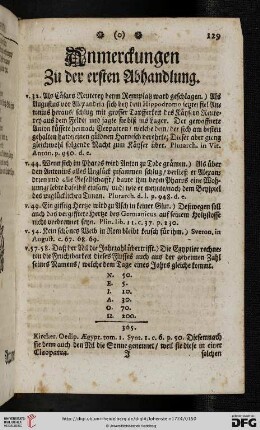 ❀ (0) ❀ 129
Anmerckungen
Zu der ersten Abhandlung.
v. 32. Als Cäsars Reuterey beym Rennplatz ward geschlagen.) Als
Augustus vor Alexandria sich bey dem Hippodromo setzte; fiel An-
tonius heraus, schlug mit grosser Tapferkeit des Käysers Reute-
rey aus dem Felde; und jagte sie biß ins Lager. Der gewaffnete
Anton küssete hiemit Cleopatren / welche den / der sich am besten
gehalten hatte, einen güldnen Harnisch verehrte; Dieser aber gieng
gleichwohl folgende Nacht zum Käyser über. Plutarch. in Vit.
Anton. p. 950. d. e.
v. 44. Wenn sich im Pharos wird Anton zu Tode grämen.) Als über
den Antonius alles Unglück zusammen schlug / verließ er Alexan-
drien und alle Gesellschafft / baute ihm beym Pharos eine Woh-
nung
des unglücklichen Timon. Plutarch. d. l. p. 948. d. e.
v. 49. Ein gifftig Hertze wird zu Asch in keiner Glut.) Deßwegen soll
auch das vergifftete Hertze des Germanicus auf seinem Holtzstosse
nicht verbrennet seyn. Plin. lib. 11. c. 37. p. 230.
v. 54. Kein schönes Weib in Rom bleibt keusch für ihm.) Sveton. in
August. c. 67. 68. 69.
v. 57-58. Daß der Nil die Jahrzahl übertrifft.) Die Egyptier rechne-
ten die Fruchtbarkeit dieses Flusses auch aus der geheimen Zahl
seines Namens / welche dem Tage eines Jahrs gleiche kommt.
N. 50.
E. 5.
I. 10.
A. 30.
O. 70.
Σ. 200.
365.
Kircher. Oedip. Ægypt. tom. 1. Synt. 1. c. 6. p. 50. Diesemnach
sie denn auch den Nil die Sonne genennet / weil sie diese in einer
Cleopatra. J solchen
DFG